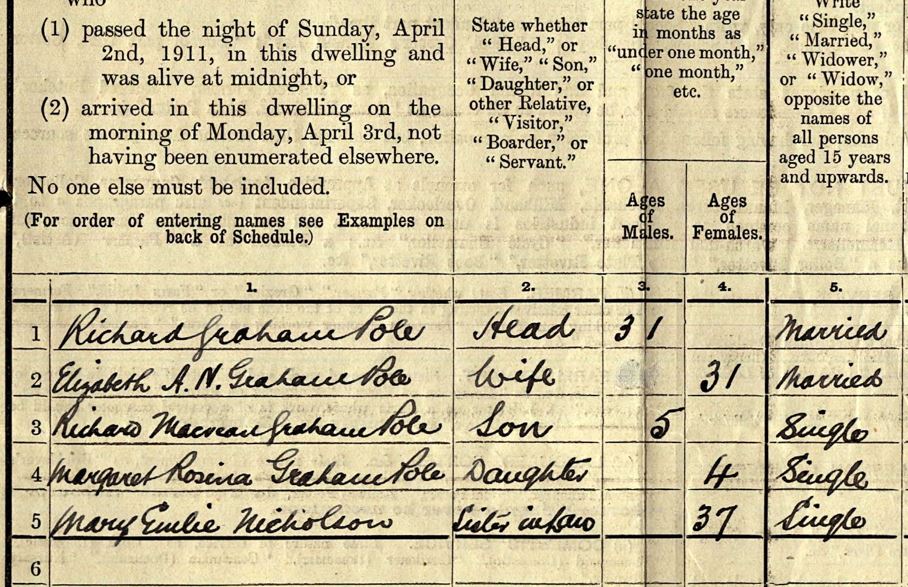 who
(1) passed the night of Sunday, April
2nd, 1911, in this dwelling and
was alive at midnight, or
(2) arrived in this dwelling on the
morning of Monday, April 3rd, not
having been enumerated elsewhere.
No one else must be included.
(For order of entering names see Examples on
back of Schedule.)
State whether
"Head," or
"Wife," "Son,"
"Daughter," or
other Relative,
"Visitor,"
"Boarder," or
"Servant."
state the age
in months as
"under one month,"
"one month,"
etc.
Ages
of
Males.
Ages
of
Females.
Write
"Single,"
"Married,"
"Widower,"
or "Widow,"
opposite the
names of
all persons
aged 15 years
and upwards.
1. 2. 3. 4. 5.
1 Richard Graham Pole Head 31 Married
2 Elizabeth A. N. Graham Pole Wife 31 Married
3 Richard Macvean Graham Pole Son 5 Single
4 Margaret Rosina Graham Pole Daughter 4 Single
5 Mary Emilie Nicholson Sister in law 37 Single
6